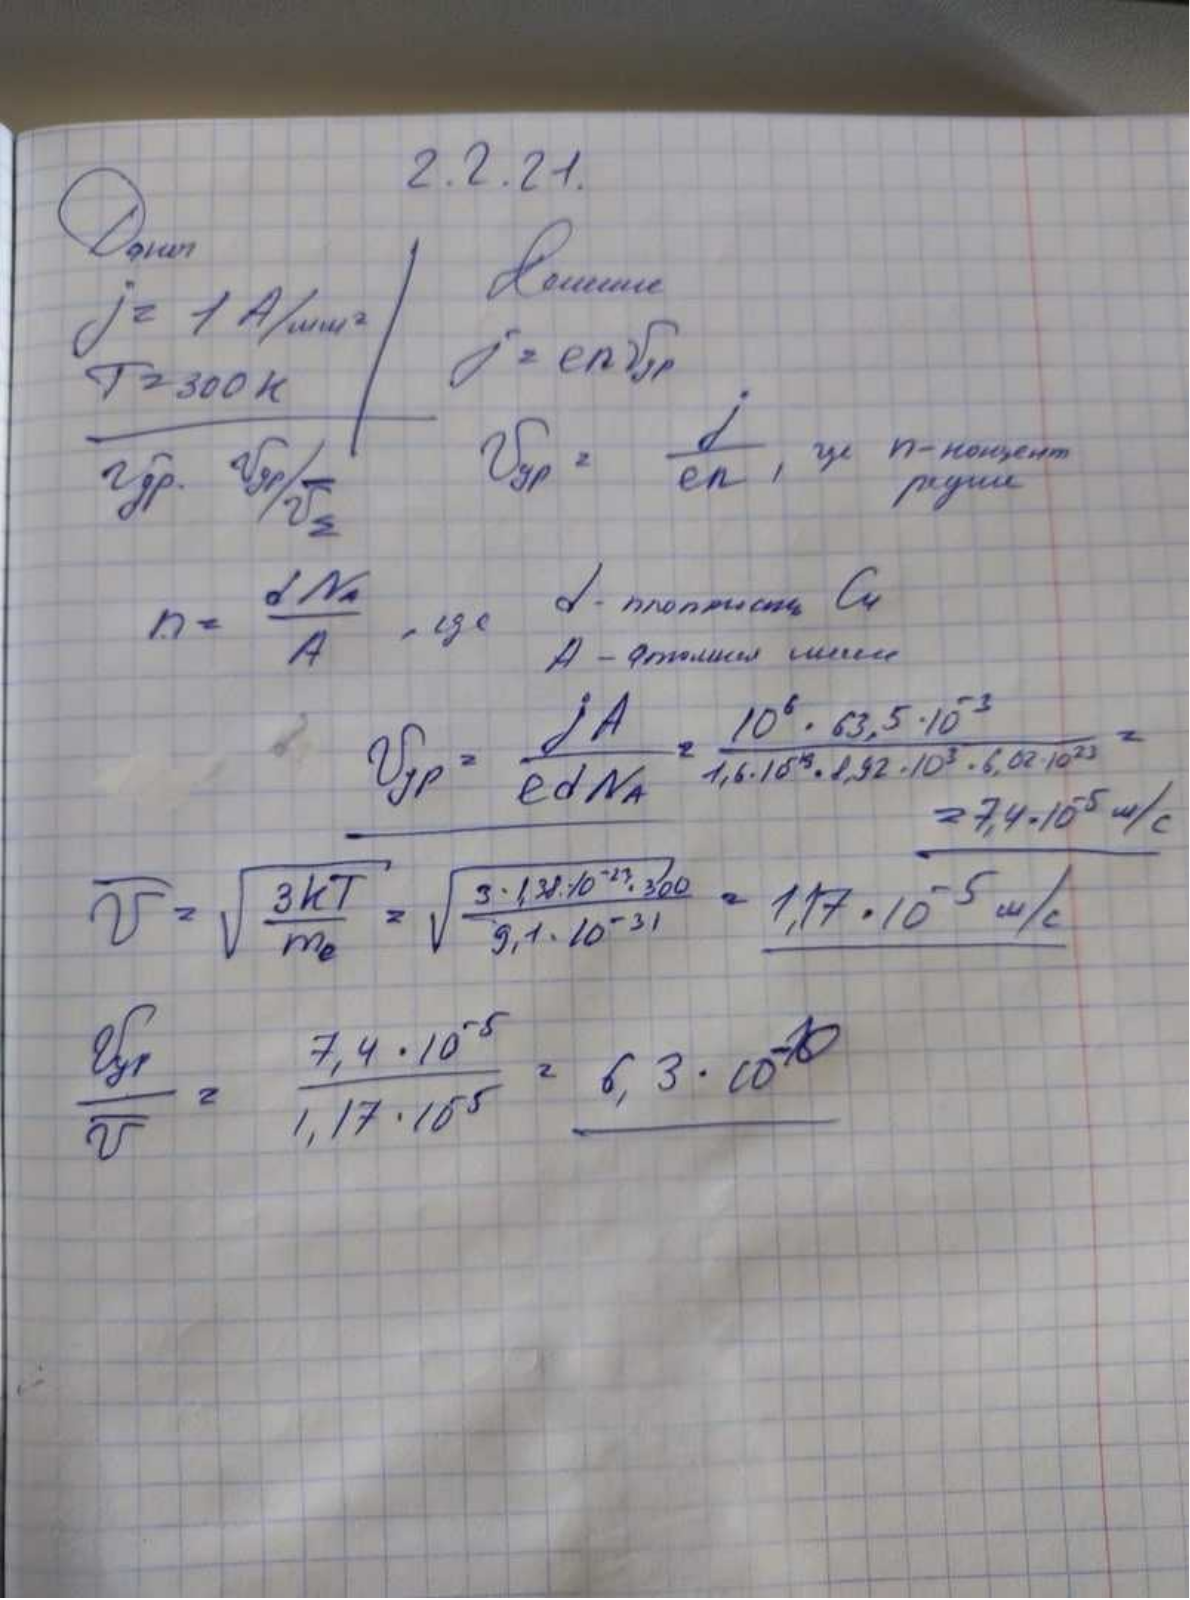 2.2.21.
Дано
Решение
j = 1 А/мм²
T = 300 К
j = enVдр
Vдр = j/en, где n-концент
рация
Vдр. Vдр/V̄
n = dNA/A, где
d - плотность Cu
A - атомная масса
Vдр = jA/edNA = 10⁶ · 63,5 · 10⁻³/1,6 · 10⁻¹⁹ · 8,92 · 10³ · 6,02 · 10²³ =
= 7,4 · 10⁻⁵ м/с
V̄ = √(3kT/me) = √(3 · 1,38 · 10⁻²³ · 300/9,1 · 10⁻³¹) = 1,17 · 10⁻⁵ м/с
Vдр/V̄ = 7,4 · 10⁻⁵/1,17 · 10⁻⁵ = 6,3 · 10⁻¹⁰